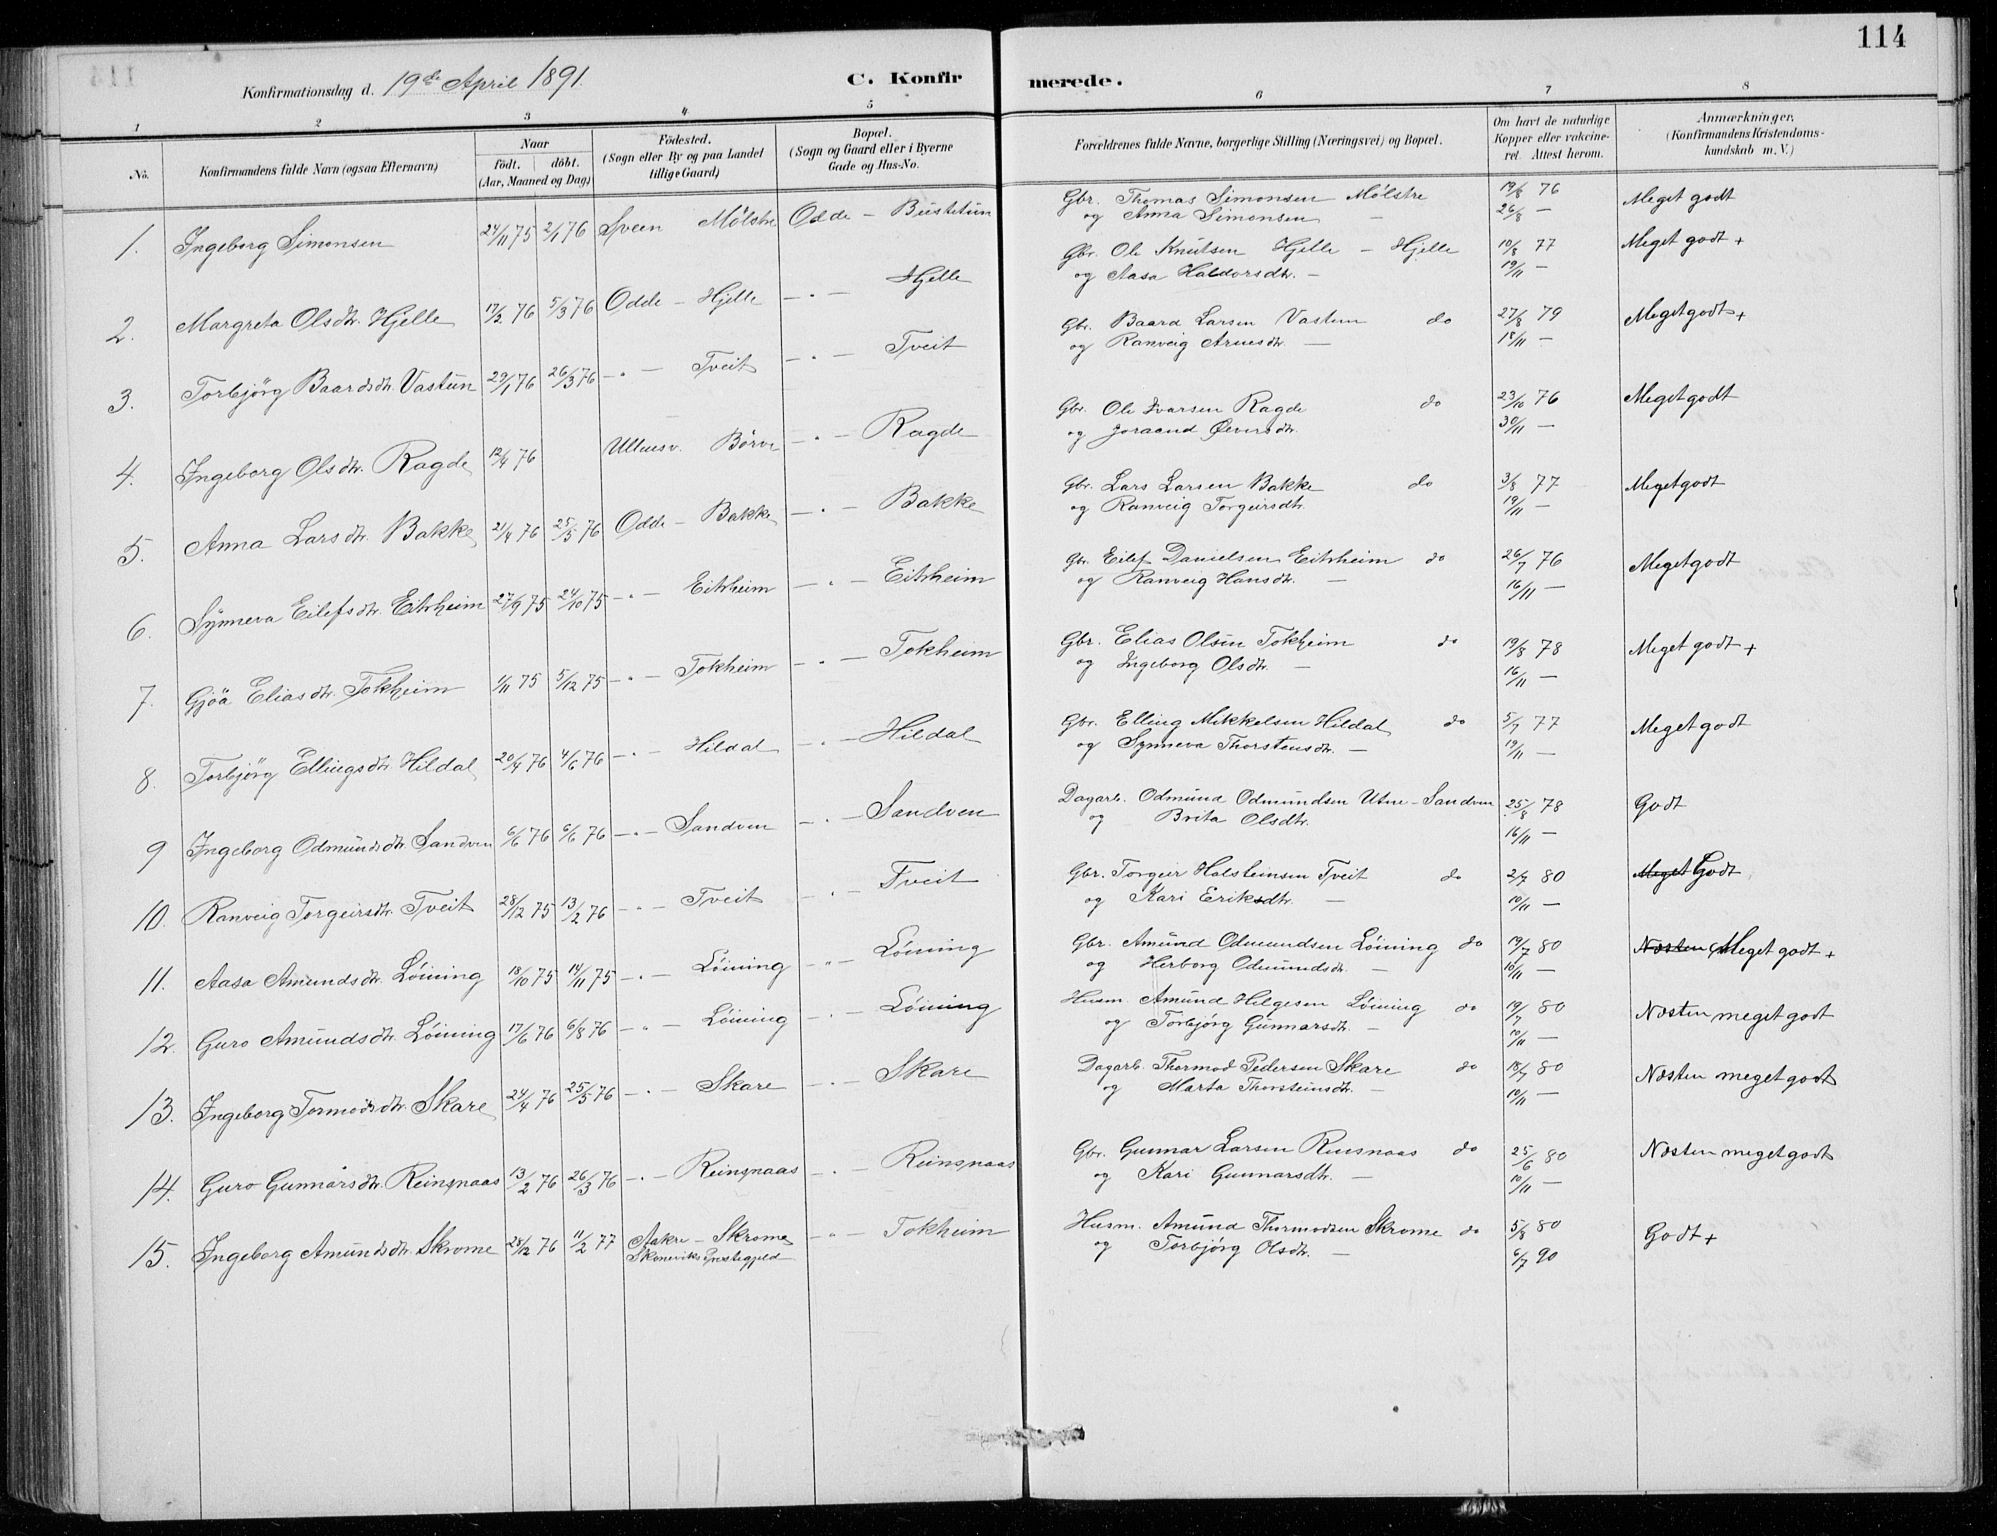 114
Konfirmationsdag d. 19de April 1891. C. Konfirmerede.
1 2 3 4 5 6 7 8
No. Konfirmandens fulde Navn (ogsaa Efternavn) Naar födt. döbt. (Aar, Maaned og Dag) Födested. (Sogn eller By og paa Landet tillige Gaard) Bopæl. (Sogn og Gaard eller i Byerne Gade og Hus-No. Forældrenes fulde Navne, borgerlige Stilling (Næringsvei) og Bopæl. Om havt de naturlige Kopper eller vakcineret. Attest herom. Anmærkninger. (Konfirmandens Kristendomskundskab m. V.)
1. Ingeborg Simonsen 24/11 75 2/1 76 Sveen Mölstre Odde - Bustetun Gbr. Thomas Simonsen Mölstre 19/8 76 Meget godt
og Anna Simonsen - 26/8 -
2. Margreta Olsdtr. Hjelle 17/2 76 5/3 76 Odde - Hjelle - " - Hjelle Gbr. Ole Knutsen Hjelle - Hjelle 10/8 77 Meget godt +
og Aasa Haldorsdtr. - 19/11 -
3. Torbjörg Baardsdtr. Vastun 29/1 76 26/3 76 - " - Tveit - " - Tveit Gbr. Baard Larsen Vastun do 27/8 79 Meget godt +
og Ranveig Arnesdtr. - 18/11 -
4. Ingeborg Olsdtr. Ragde 12/4 76 Ullensv. Börve - " - Ragde Gbr. Ole Ivarsen Ragde do 23/10 76 Meget godt
og Joraand Øversdtr. 30/11 -
5. Anna Larsdtr. Bakke 21/4 76 25/5 76 Odde - Bakke - " - Bakke Gbr. Lars Larsen Bakke do 3/8 77 Meget godt
og Ranveig Torgeirsdtr. 19/11 -
6. Synneva Eilefsdtr. Eitrheim 27/9 75 24/10 75 - " - Eitrheim - " - Eitrheim Gbr. Eilef Danielsen Eitrheim do 26/7 76 Meget godt
og Ranveig Hansdtr. - 16/11 -
7. Gjöa Eliasdtr. Tokheim 1/11 75 5/12 75 - " - Tokheim - " - Tokheim Gbr. Elias Olsen Tokheim do 19/8 78 Meget godt +
og Ingeborg Olsdtr. - 16/11 -
8. Torbjörg Ellingsdtr. Hildal 20/4 76 4/6 76 - " - Hildal - " - Hildal Gbr. Elling Mikkelsen Hildal do 5/7 77 Meget godt
og Synneva Thorstensdtr. - 19/11 -
9 Ingeborg Odmundsdtr. Sandven 6/6 76 6/6 76 - " - Sandven - " - Sandven Dagarb. Odmund Odmundsen Utne - Sandven 25/8 78 Godt
og Breta Olsdtr. 16/11 -
10. Ranveig Torgeirsdtr. Tveit 28/12 75 13/2 76 - " - Tveit - " - Tveit Gbr. Torgeir Halsteinsen Tveit do 2/7 80 Meget Godt
og Kari Eriksdtr. - 10/11 -
11. Aasa Amundsdtr. Löining 18/10 75 14/11 75 - " - Löining - " - Löining Gbr. Amund Odmundsen Löining do 19/7 80 Næsten Meget godt +
og Herborg Odmundsdtr. - 10/11 -
12. Guro Amundsdtr. Löining 17/6 76 6/8 76 - " - Löining - " - Löining Husm. Amund Helgesen Löining do 19/7 80 Næsten meget godt
og Torbjörg Gunnarsdtr. - 10/11 -
13. Ingeborg Tormodsdtr. Skare 24/4 76 25/5 76 - " - Skare - " - Skare Dagarb. Thormod Pedersen Skare do 18/7 80 Næsten meget godt
og Marta Thorsteinsdtr. - 10/11 -
14. Guro Gunnarsdtr. Reinsnaas 13/2 76 26/3 76 - " - Reinsnaas - " - Reinsnaas Gbr. Gunnar Larsen Reinsnaas do 25/6 80 Næsten meget godt
og Kari Gunnarsdtr. - 10/11 -
15. Ingeborg Amundsdtr. Skrome 28/12 76 11/2 77 Aakre - Skrome - " - Tokheim Husm. Amund Thormodsen Skrome do 5/8 80 Godt +
Skoneviks Prestegjeld og Torbjörg Olsdtr. - 6/7 90